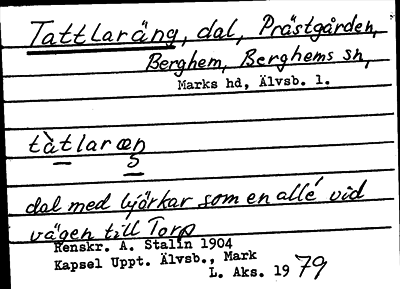 Tattlaräng, dal, Prästgården,
Berghem, Berghems sn,
Marks hd, Älvsb. l.
tàtlaræŋ
5
dal med björkar som en allé vid
vägen till Torp
Renskr. A. Stalin 1904
Kapsel Uppt. Älvsb., Mark
L. Aks. 1979